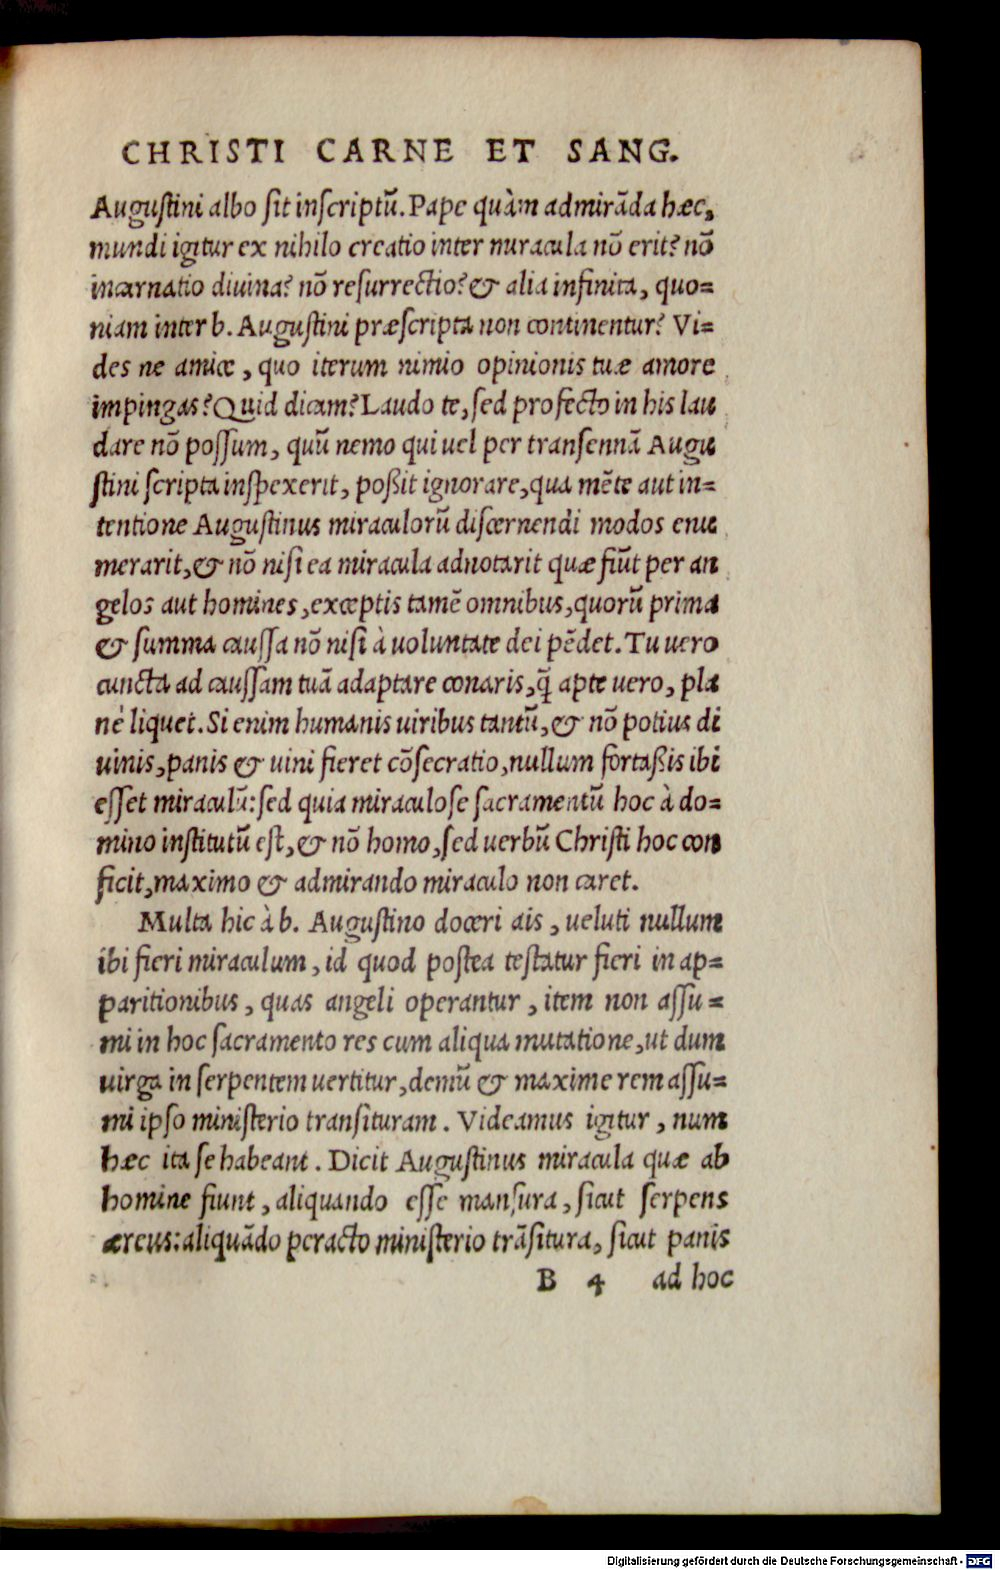 CHRISTI CARNE ET SANG.
Augustini albo sit inscriptũ. Pape quàm admirãda hæc,
mundi igitur ex nihilo creatio inter miracula nõ erit? nõ
incarnatio diuina? nõ resurrectio? & alia infinita, quo=
niam inter b. Augustini præscripta non continentur? Vi=
des ne amice, quo iterum nimio opinionis tuæ amore
impingas? Quid dicam? Laudo te, sed profecto in his lau
dare nõ possum, quũ nemo qui uel per transennã Augu
stini scripta inspexerit, poßit ignorare, qua mẽte aut in=
tentione Augustinus miraculorũ discernendi modos enu
merarit, & nõ nisi ea miracula adnotarit quæ fiũt per an
gelos aut homines, exceptis tamẽ omnibus, quorũ prima
& summa caussa nõ nisi à uoluntate dei pẽdet. Tu uero
cuncta ad caussam tuã adaptare conaris, q̃ apte uero, pla
nè liquet. Si enim humanis uiribus tantũ, & nõ potius di
uinis, panis & uini fieret cõsecratio, nullum fortaßis ibi
esset miraculũ: sed quia miraculose sacramentũ hoc à do=
mino institutũ est, & nõ homo, sed uerbũ Christi hoc con
ficit, maximo & admirando miraculo non caret.
Multa hic à b. Augustino doceri ais, ueluti nullum
ibi fieri miraculum, id quod postea testatur fieri in ap=
paritionibus, quas angeli operantur, item non assu=
mi in hoc sacramento res cum aliqua mutatione, ut dum
uirga in serpentem uertitur, demũ & maxime rem assu=
mi ipso ministerio transituram. Videamus igitur, num
hæc ita se habeant. Dicit Augustinus miracula quæ ab
homine fiunt, aliquando esse mansura, sicut serpens
æreus: aliquãdo peracto ministerio trãsitura, sicut panis
B 4 ad hoc
Digitalisierung gefördert durch die Deutsche Forschungsgemeinschaft - DFG